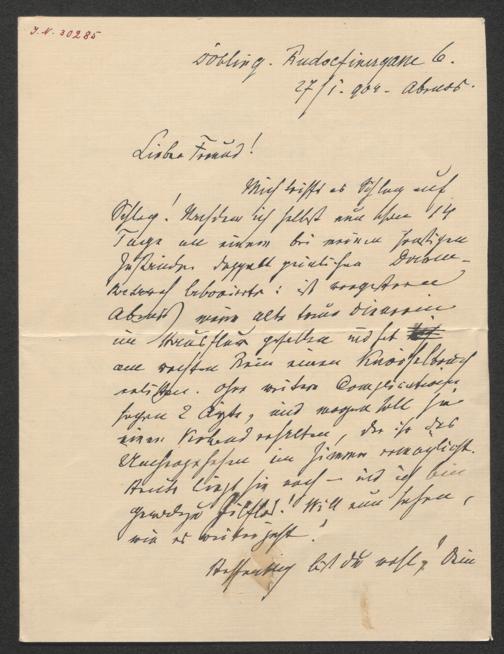 J.N. 30285
Döbling. Rudolfinergasse 6.
27/I. 904. Abends.
Lieber Freund!
Mich trifft es Schlag auf
Schlag! Nachdem ich selbst nun schon 14
Tage an einem bei meinen heutigen
Zuständen doppelt peinlichen Darm-
laborirte: ist vorgestern
Abends meine alte treue Dienerin
im Hausflur gefallen und hat
am rechten Bein einen Knöchelbruch
erlitten. Ohne weitere Complicationen,
sagen 2 Ärzte, und morgen soll sie
einen Verband erhalten, der ihr das
Umhergehen im Zimmer ermöglicht.
Heute liegt sie noch – und ich bin
geradezu hilflos! Will nun sehen,
wie es weiter geht!
Hoffentlich bist du wohl! Dein